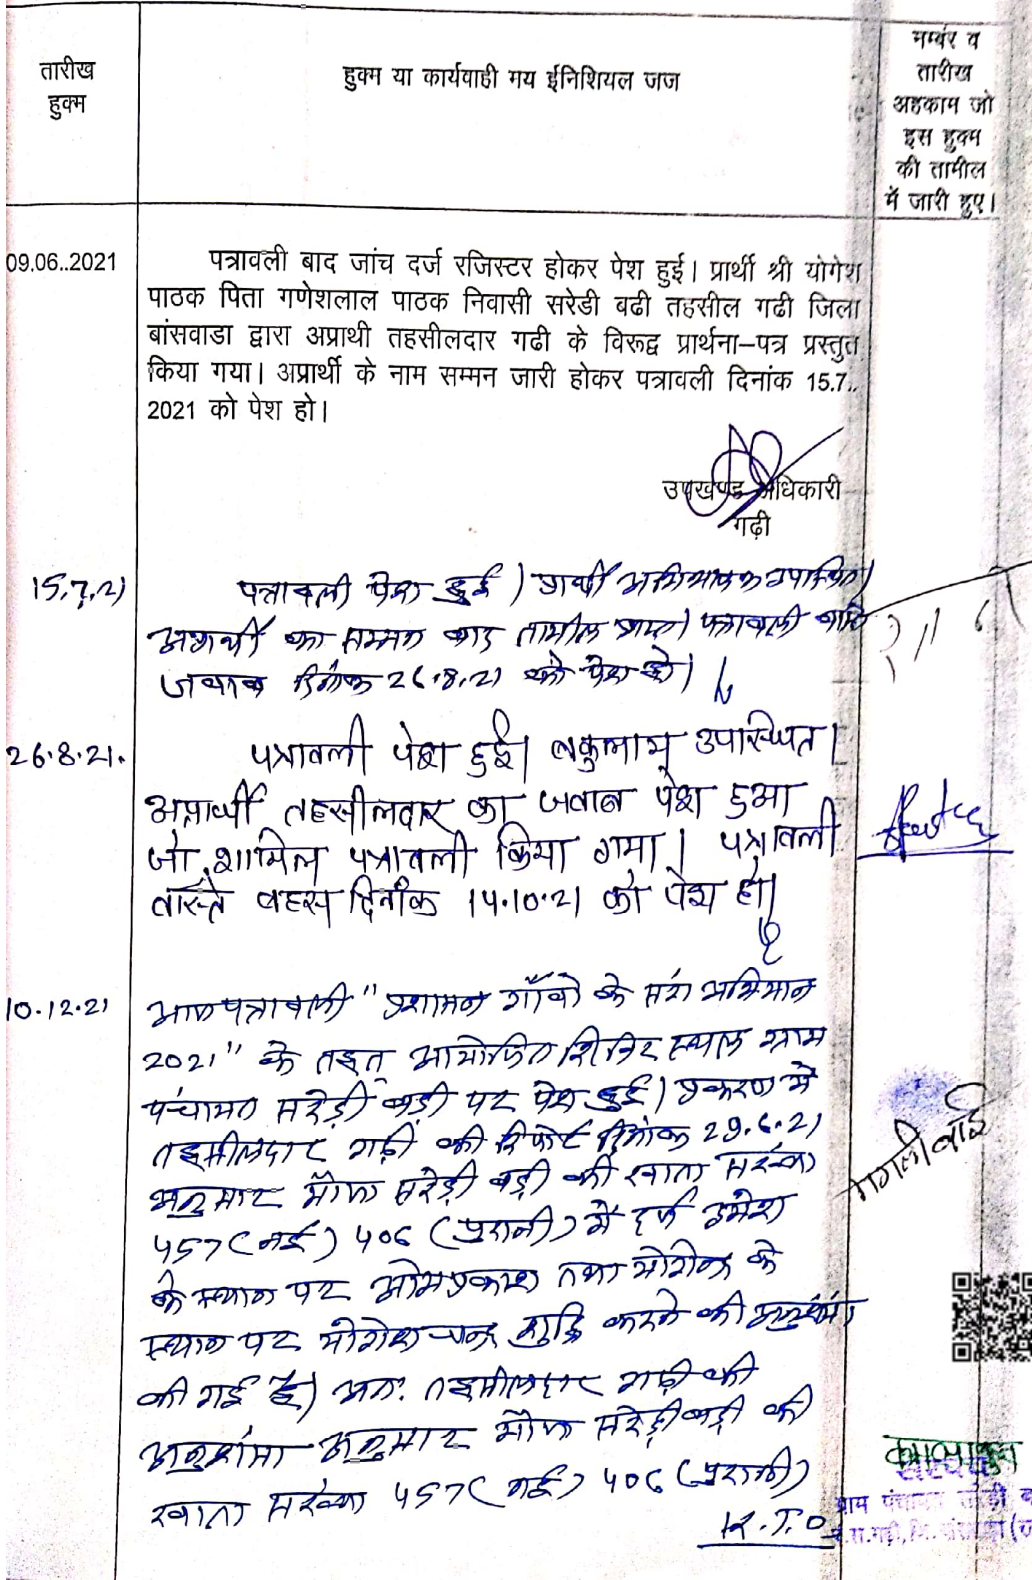 तारीख
हुक्म
हुक्म या कार्यवाही मय ईनिशियल जज
नम्बर व
तारीख
अहकाम जो
इस हुक्म
की तामील
में जारी हुए।
09.06..2021
पत्रावली बाद जांच दर्ज रजिस्टर होकर पेश हुई। प्रार्थी श्री योगेश
पाठक पिता गणेशलाल पाठक निवासी सरेडी बढी तहसील गढी जिला
बांसवाडा द्वारा अप्राथी तहसीलदार गढी के विरूद्व प्रार्थना–पत्र प्रस्तुत
किया गया। अप्रार्थी के नाम सम्मन जारी होकर पत्रावली दिनांक 15.7..
2021 को पेश हो।
उपखण्ड अधिकारी
गढ़ी
15.7.21
पत्रावली पेश हुई। प्रार्थी अभिभाषक उपस्थित।
अप्रार्थी का सम्मन बाद तामील प्राप्त। पत्रावली वास्ते
जवाब दिनांक 26.8.21 को पेश हो।
26.8.21.
पत्रावली पेश हुई। वकुलाय उपस्थित।
अप्रार्थी तहसीलदार का जवाब पेश हुआ
जो शामिल पत्रावली किया गया। पत्रावली
वास्ते बहस दिनांक 14.10.21 को पेश हो।
10.12.21
आज पत्रावली "प्रशासन गाँवो के संग अभियान
2021" के तहत् आयोजित शिविर स्थल ग्राम
पंचायत सरेड़ी बड़ी पर पेश हुई। प्रकरण मे
तहसीलदार गढ़ी की रिपोर्ट दिनांक 29.6.21
अनुसार मौजा सरेड़ी बड़ी की खाता संख्या
457 (नई) 406 (पुरानी) मे दर्ज उमेश
के स्थान पर ओमप्रकाश तथा योगेश के
स्थान पर योगेश चन्द्र शुद्धि करने की अनुशंषा
की गई है। अतः तहसीलदार गढ़ी की
अनुशंसा अनुसार मौजा सरेड़ी बड़ी की
खाता संख्या 457 (नई) 406 (पुरानी)
P.T.O